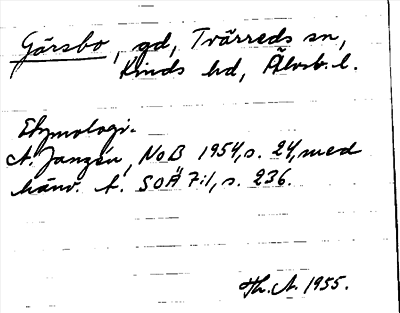 Gärsbo, gd, Tvärreds sn,
Kinds hd, Älvsb. l.
Etymologi.
A. Janzén, NoB 1954, s. 24, med
hänv. t. SOÄ 7:1, s. 236.
Th. A. 1955.